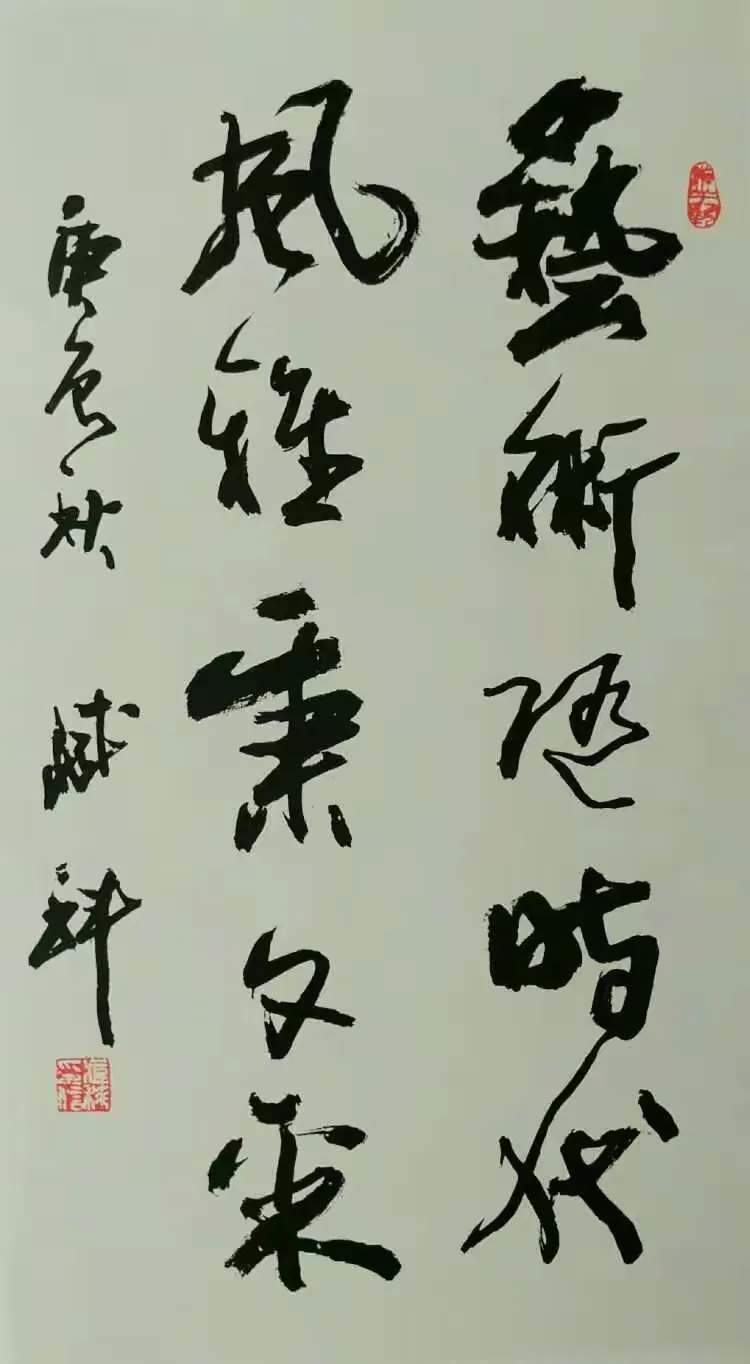 藝術隨時代
風雅兼文采
庚辰秋